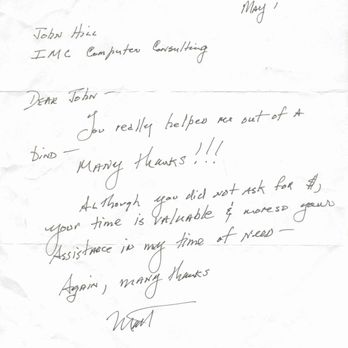 May 1
John Hill
IMC Computer Consulting
Dear John —
You really helped me out of a
bind —
Many thanks!!!
Although you did not ask for $,
your time is valuable & moreso your
assistance in my time of need —
Again, many thanks
Matt